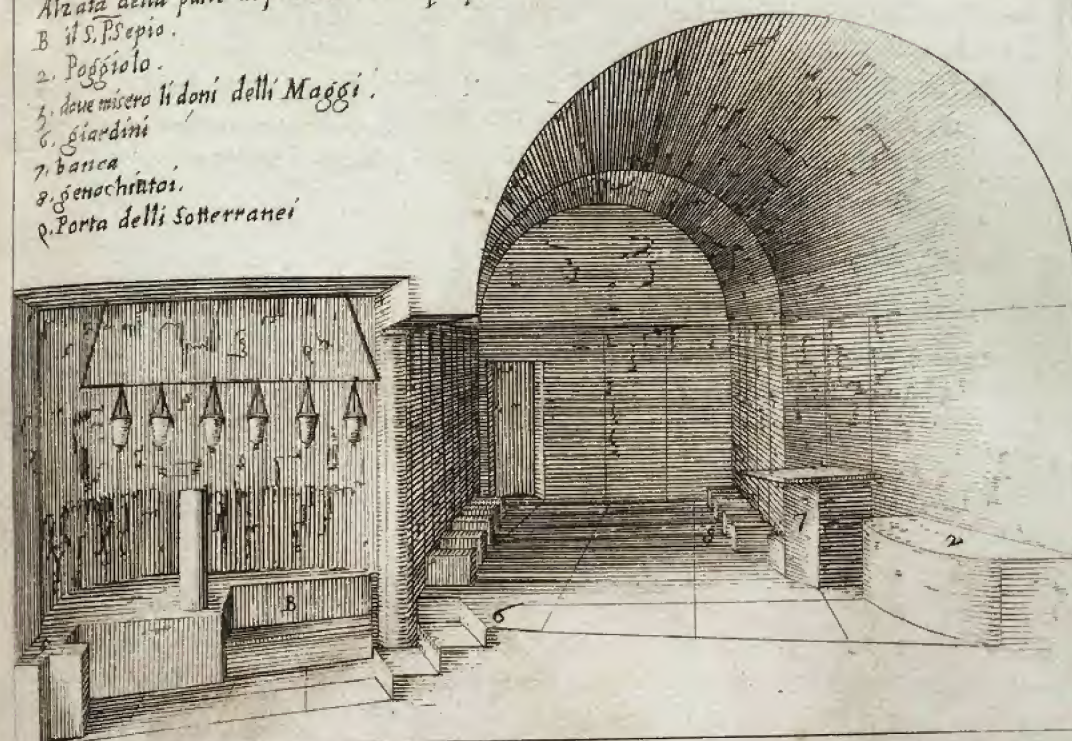 Alzata della parte
B il S. PSepio.
2. Poggiolo.
5. doue misero li doni delli Maggi.
6. giardini
7. banca
8. genochiatoi.
9. Porta delli Sotterranei
B
6
8
7
2